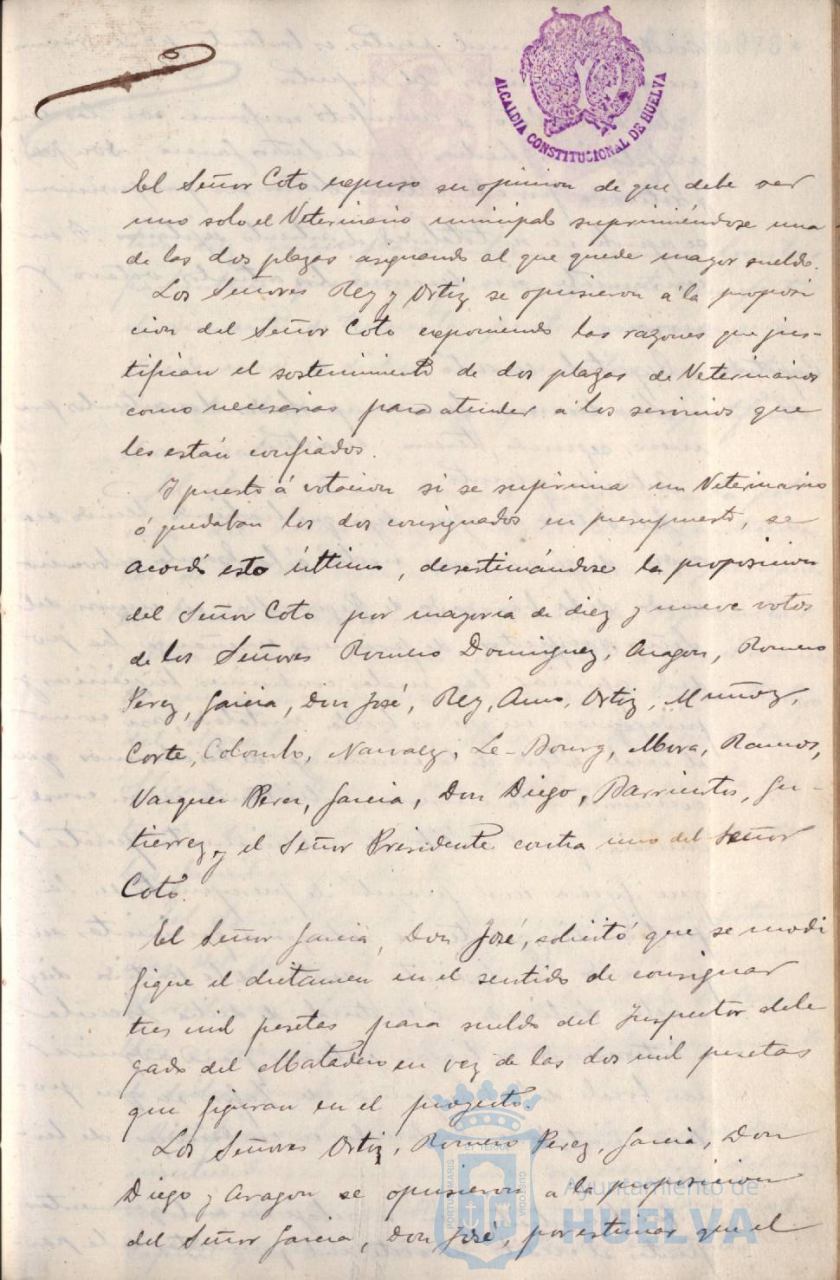 ALCALDIA CONSTITUCIONAL DE HUELVA
El Señor Coto expuso su opinion de que debe ser
uno solo el Veterinario municipal suprimiéndose una
de las dos plazas asignando al que quede mayor sueldo.
Los Señores Rey y Ortiz se opusieron á la proposi
cion del Señor Coto exponiendo las razones que jus-
tifican el sostenimiento de dos plazas de Veterinarios
como necesarias para atender á los servicios que
les están confiados.
Y puesto á votacion si se suprimia un Veterinario
ó quedaban los dos consignados en presupuesto, se
acordó esto último, desestimándose la proposicion
del Señor Coto por mayoria de diez y nueve votos
de los Señores Romero Dominguez, Aragon, Romero
Perez, Garcia, Don José, Rey, Amo, Ortiz, Muñoz,
Corte, Colombo, Narvaez, Le-Bourg, Mora, Ramos,
Vazquez Perez, Garcia, Don Diego, Barrientos, Gu-
tierrez, y el Señor Presidente contra uno del Señor
Coto.
El Señor Garcia, Don José, solicitó que se modi
fique el dictamen en el sentido de consignar
tres mil pesetas para sueldo del Inspector dele
gado del Matadero en vez de las dos mil pesetas
que figuran en el proyecto.
Los Señores Ortiz, Romero Perez, Garcia, Don
Diego y Aragon se opusieron á la proposicion
del Señor Garcia, Don José, por estimar que el
Ayuntamiento de
HUELVA